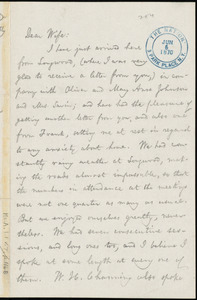 THE NATION
JUN
6
1870
3 PARK PLACE, N.Y.
Dear Wife:
I have just arrived here
from Longwood, (where I was very
glad to receive a letter from you,) in com-
pany with Oliver and Mary Anne Johnson
and Mrs. and have had the pleasure of
getting another letter from you, and also one
from Frank, setting me at rest in regard
to any anxiety about home. We had con-
stantly rainy weather at Longwood, mak-
ing the roads almost impassable, so that
the numbers in attendance at the meetings
were not one quarter as many as usual.
But we enjoyed ourselves greatly, never-
theless. We had seven consecutive ses-
sions, and long ones too, and I believe I
spoke at some length at every one of
them. W. H. Channing also spoke